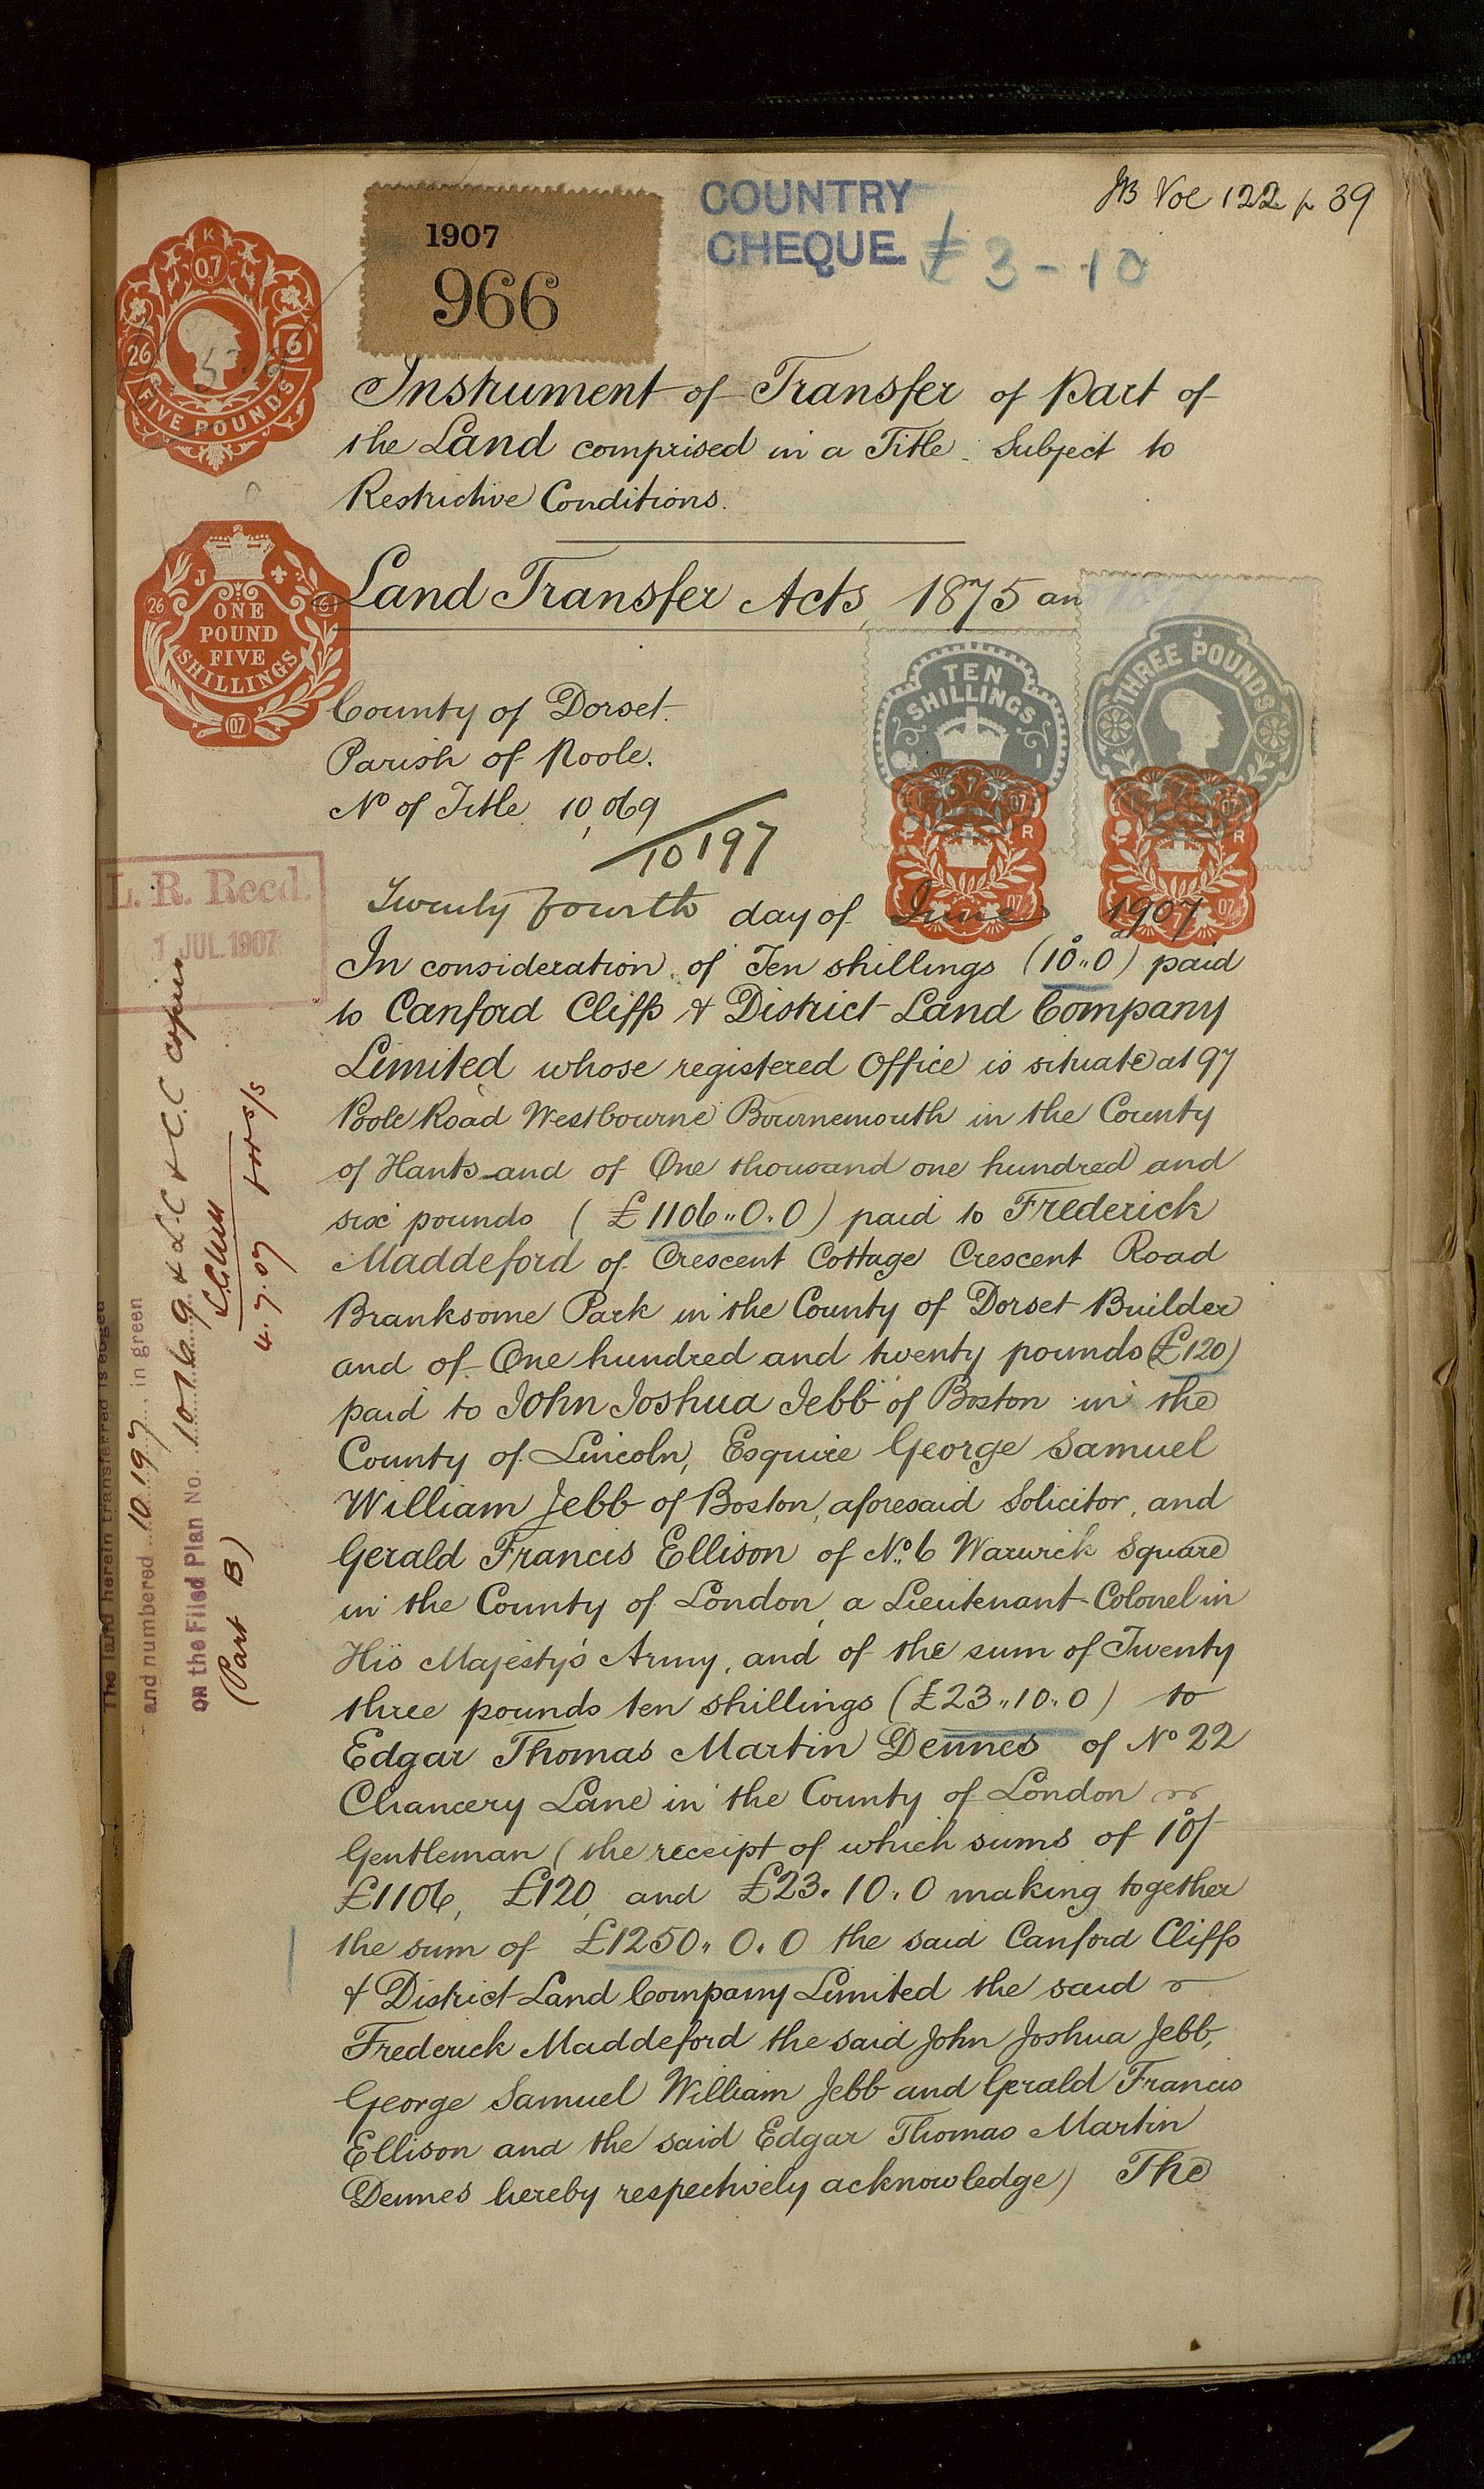 JB Vol 122 p 39
COUNTRY
CHEQUE. £3-10
1907
966
K
07
26
6
FIVE POUNDS
Instrument of Transfer of Part of
the Land comprised in a Title. Subject to
Restrictive Conditions.
J
26
6
ONE
POUND
FIVE
SHILLINGS
07
Land Transfer Acts, 1875 an
TEN
SHILLINGS
J
THREE POUNDS
County of Dorset.
Parish of Poole.
No of Title 10,069
10197
07
R
07
07
R
07
L. R. Recd.
1 JUL. 1907
Twenty fourth day of June 1907
In consideration of Ten shillings (10..0) paid
to Canford Cliffs & District Land Company
Limited whose registered Office is situate at 97
Poole Road Westbourne Bournemouth in the County
of Hants and of One thousand one hundred and
six pounds (£1106..0.0) paid to Frederick
Maddeford of Crescent Cottage Crescent Road
Branksome Park in the County of Dorset Builder
and of One hundred and twenty pounds (£120)
paid to John Joshua Jebb of Boston in the
County of Lincoln, Esquire George Samuel
William Jebb of Boston, aforesaid Solicitor, and
Gerald Francis Ellison of No. 6 Warwick Square
in the County of London, a Lieutenant-Colonel in
His Majesty's Army, and of the sum of Twenty
three pounds ten shillings (£23..10..0) to
Edgar Thomas Martin Dennes of No 22
Chancery Lane in the County of London
Gentleman (the receipt of which sums of 10/-
£1106, £120, and £23.10.0 making together
the sum of £1250..0.0 the said Canford Cliffs
& District Land Company Limited the said
Frederick Maddeford the said John Joshua Jebb,
George Samuel William Jebb and Gerald Francis
Ellison and the said Edgar Thomas Martin
Dennes hereby respectively acknowledge) The
The land herein transferred is edged
and numbered 10197 in green
on the Filed Plan No. 10069 & L.C & C.C copies
(Part B)
4.7.07